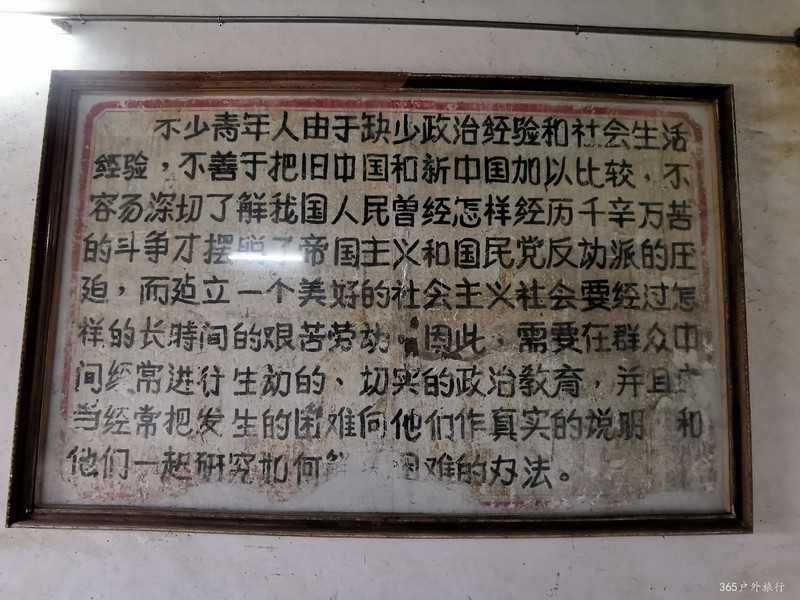 不少青年人由于缺少政治经验和社会生活
经验，不善于把旧中国和新中国加以比较，不
容易深切了解我国人民曾经怎样经历千辛万苦
的斗争才摆脱了帝国主义和国民党反动派的压
迫，而建立一个美好的社会主义社会要经过怎
样的长时间的艰苦劳动。因此，需要在群众中
间经常进行生动的、切实的政治教育，并且应
当经常把发生的困难向他们作真实的说明 和
他们一起研究如何解 困难的办法。
365户外旅行